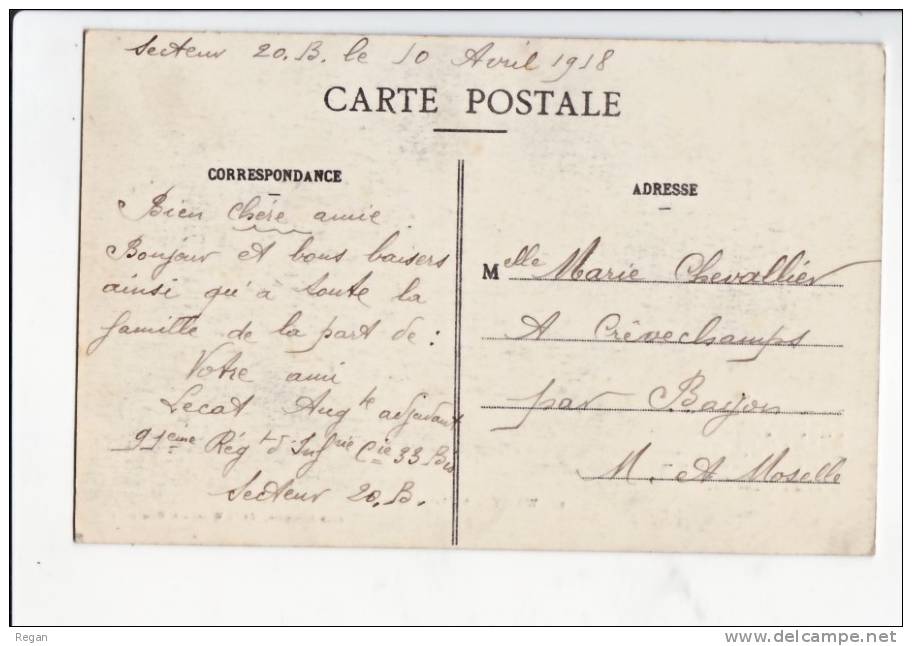 Secteur 20.B. le 10 Avril 1918
CARTE POSTALE
CORRESPONDANCE
Bien chère amie
Bonjour et bons baisers
ainsi qu'à toute la
famille de la part de :
Votre ami
Lecat Aug te adjudant
91eme Rég t d'Inf rie Cie 33 Bis
Secteur 20.B.
ADRESSE
Melle Marie Chevallier
A Crèvechamps
par Bayon
M. et Moselle
Regan
www.delcampe.net